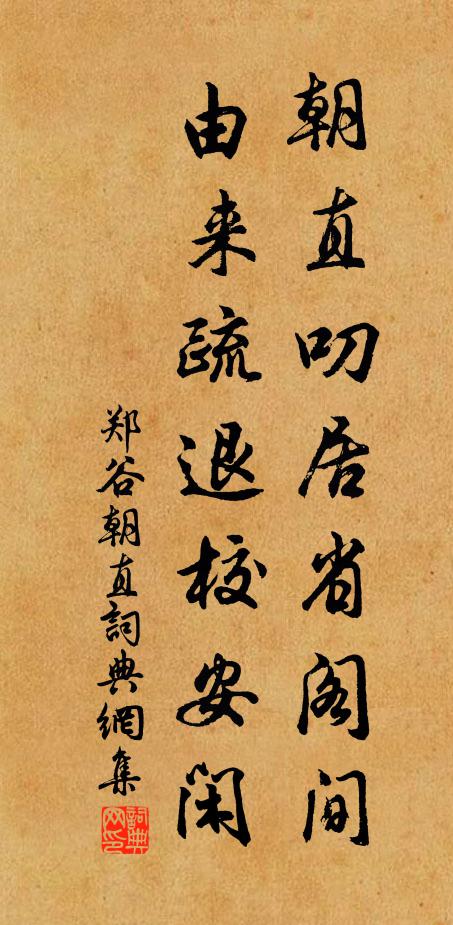 朝直叨居省阁间
由来疏退校安闲
郑谷朝直詞典網集
詞典网印